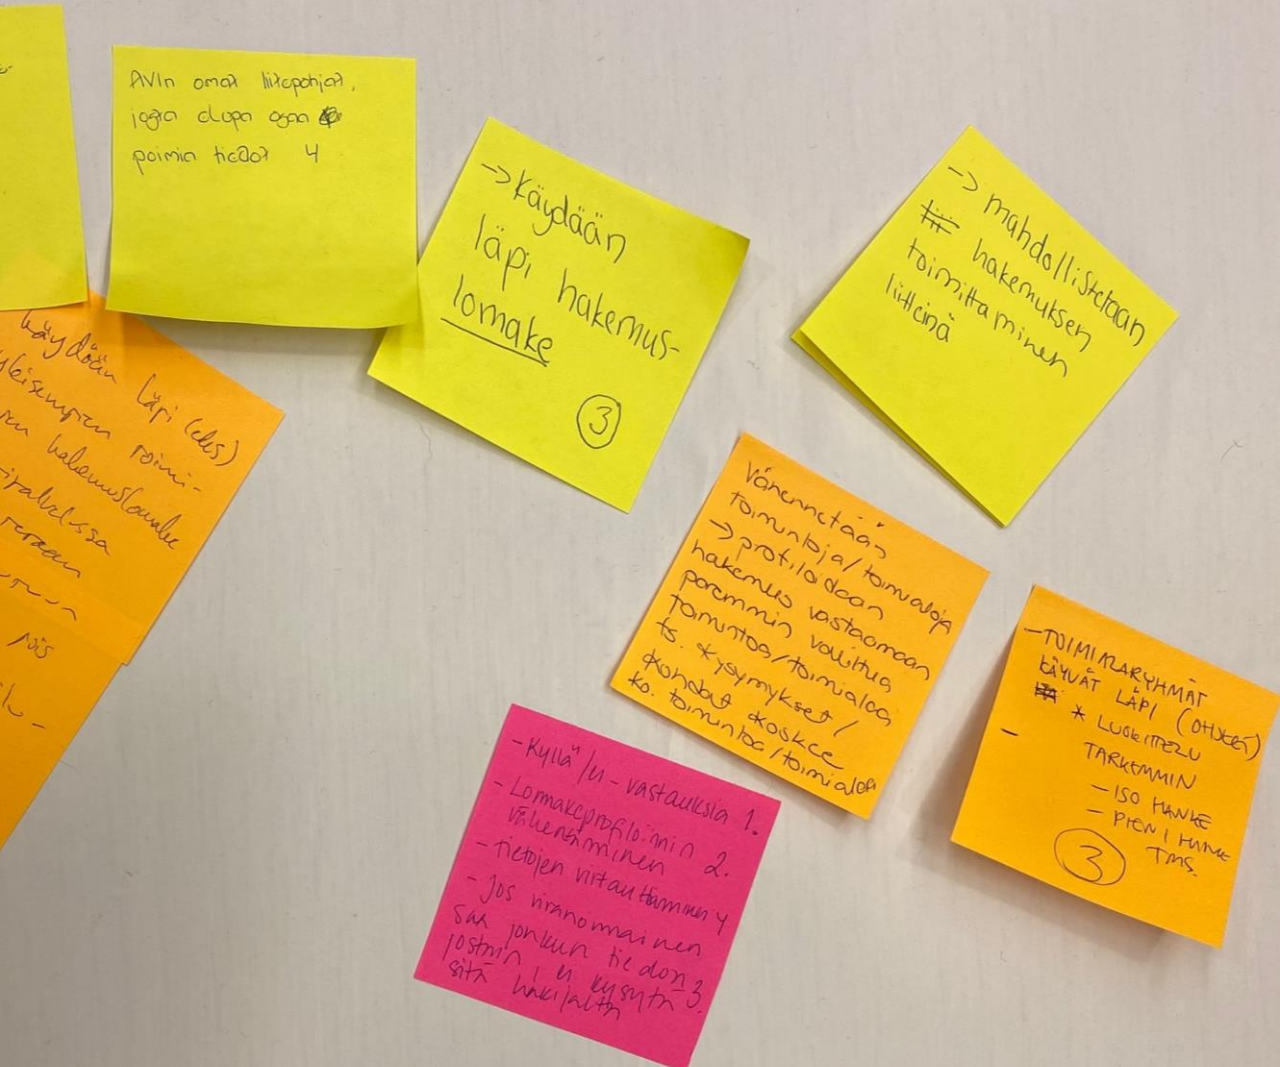 AVIn omat liitepohjat,
josta olopa osaa
poimia tiedot 4
-> Käydään
läpi hakemus-
lomake
3
-> mahdollistetaan
hakemuksen
toimittaminen
liitteinä
käydään läpi (eks)
yleisempien toimi-
hakemuslomake
pois
Vähennetään
toimintoja/toimialoja
-> profiloidaan
hakemus vastaamaan
paremmin valittua
toimintoa/toimialaa
ts. kysymykset/
kohdat koskee
ko. toimintoa/toimialaa
- TOIMIALARYHMÄT
KÄYVÄT LÄPI (OHJEET)
* LUOKITTELU
TARKEMMIN
- ISO HANKE
- PIENI HANKE
TMS.
3
- Kyllä/ei - vastauksia 1.
- Lomakeprofiloinnin 2.
vähentäminen
- tietojen virtauttaminen 4
- Jos viranomainen
saa jonkun tiedon 3.
jostain, ei kysytä
sitä hakijalta